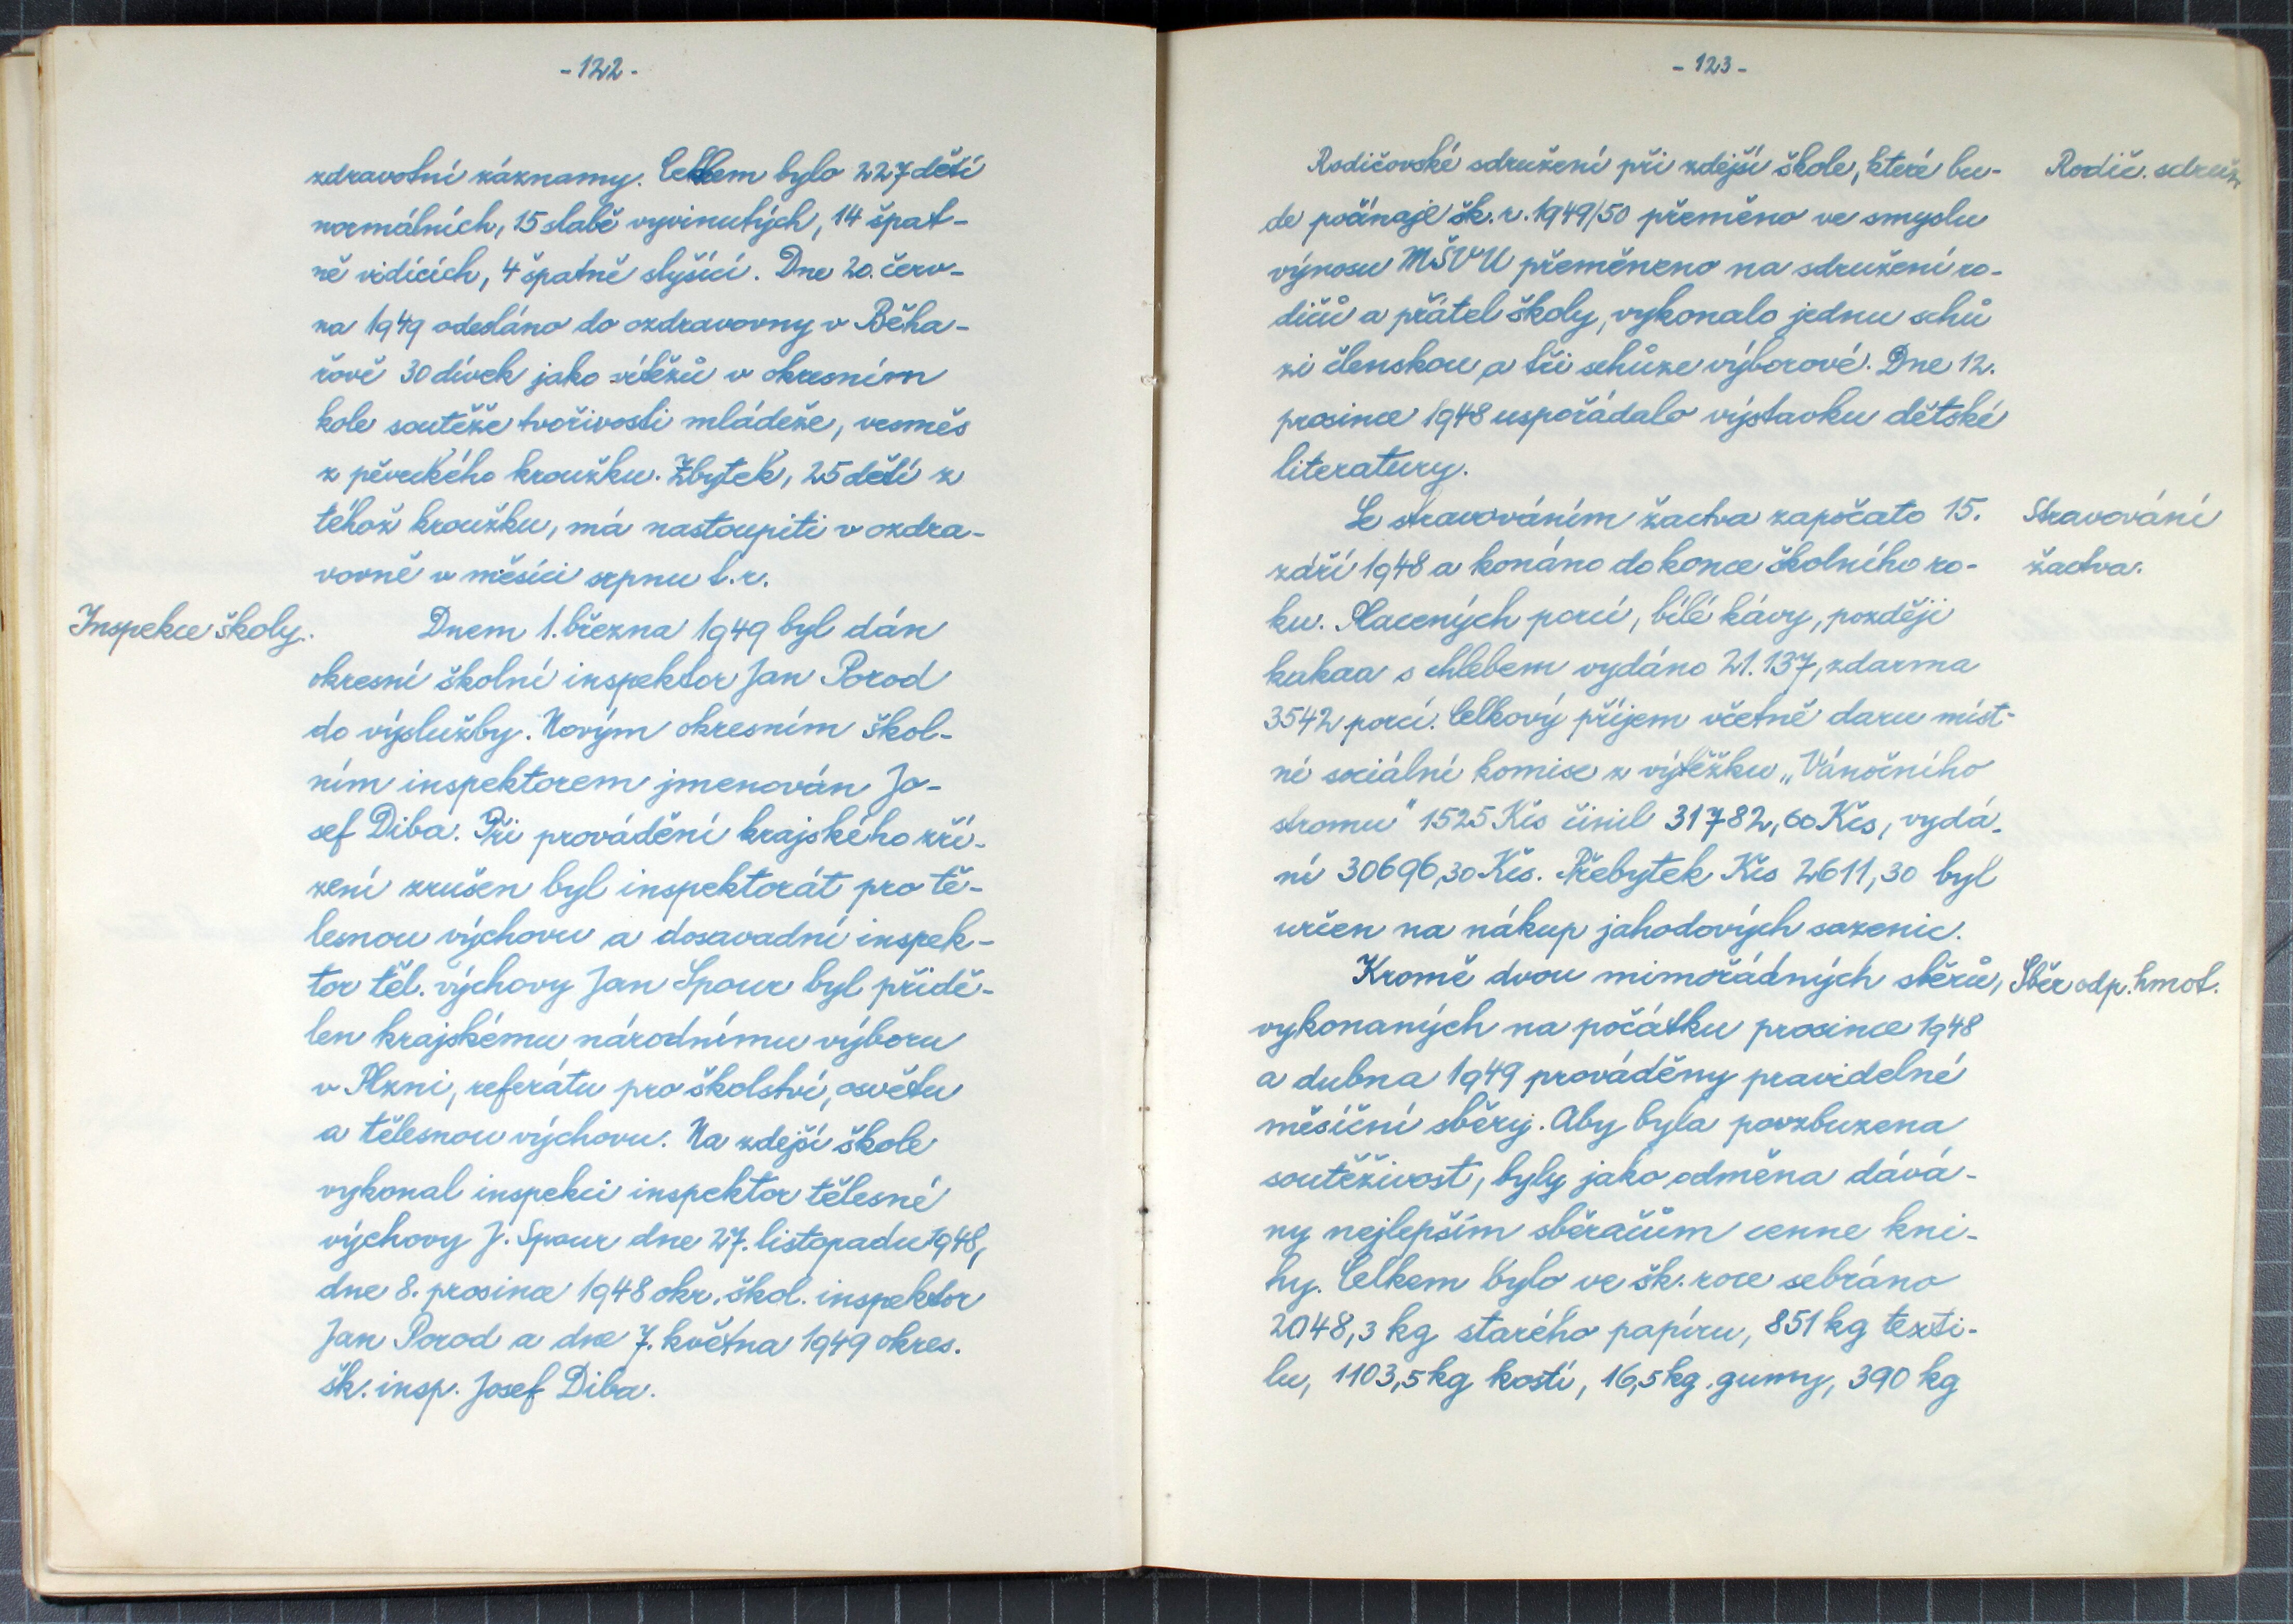 - 122 -
zdravotní záznamy. Celkem bylo 227 dětí
normálních, 15 slabě vyvinutých, 14 špat-
ně vidících, 4 špatně slyšící. Dne 20. červ-
na 1949 odesláno do ozdravovny v Běha-
řově 30 dívek jako vítězů v okresním
kole soutěže tvořivosti mládeže, vesměs
z pěveckého kroužku. Zbytek, 25 dětí z
téhož kroužku, má nastoupiti v ozdra-
vovně v měsíci srpnu t. r.
Inspekce školy.
Dnem 1. března 1949 byl dán
okresní školní inspektor Jan Porod
do výslužby. Novým okresním škol-
ním inspektorem jmenován Jo-
sef Diba. Při provádění krajského zří-
zení zrušen byl inspektorát pro tě-
lesnou výchovu a dosavadní inspek-
tor těl. výchovy Jan Spour byl přidě-
len krajskému národnímu výboru
v Plzni, referátu pro školství, osvětu
a tělesnou výchovu. Na zdejší škole
vykonal inspekci inspektor tělesné
výchovy J. Spour dne 27. listopadu 1948,
dne 8. prosince 1948 okr. škol. inspektor
Jan Porod a dne 7. května 1949 okres.
šk. insp. Josef Diba.
- 123 -
Rodičovské sdružení při zdejší škole, které bu-
de počínaje šk. r. 1949/50 přeměno ve smyslu
výnosu MŠVU přeměneno na sdružení ro-
dičů a přátel školy, vykonalo jednu schů
zi členskou a tři schůze výborové. Dne 12.
prosince 1948 uspořádalo výstavku dětské
literatury.
Rodič. sdruž.
Se stravováním žactva započato 15.
září 1948 a konáno do konce školního ro-
ku. Placených porcí, bílé kávy, později
kakaa s chlebem vydáno 21.137, zdarma
3542 porcí. Celkový příjem včetně daru míst-
ní sociální komise z výtěžku „Vánočního
stromu" 1525 Kčs činil 31782,60 Kčs, vydá-
ní 30696,30 Kčs. Přebytek Kčs 2611,30 byl
určen na nákup jahodových sazenic.
Stravování
žactva.
Kromě dvou mimořádných sběrů,
vykonaných na počátku prosince 1948
a dubna 1949 prováděny pravidelné
měsíční sběry. Aby byla povzbuzena
soutěživost, byly jako odměna dává-
ny nejlepším sběračům cenne kni-
hy. Celkem bylo ve šk. roce sebráno
2048,3 kg starého papíru, 851 kg texti-
lu, 1103,5 kg kostí, 16,5 kg gumy, 390 kg
Sběr odp. hmot.